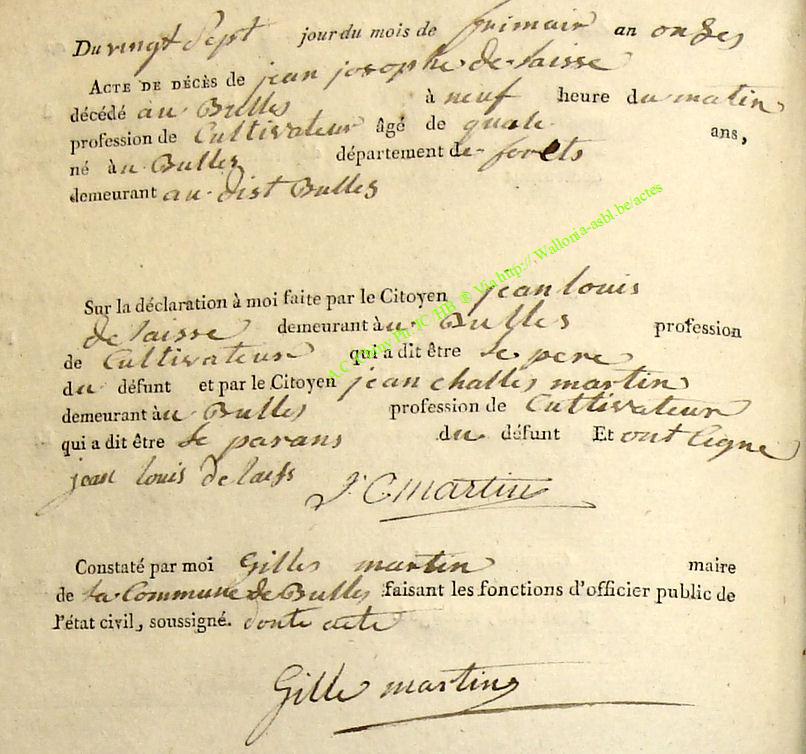 Du vingt Sept jour du mois de frimair an onzes
ACTE DE DÉCÈS de jean josophe de-laisse
décédé au Bulles à neuf heure du matin
profession de Cultivateur âgé de quale ans,
né àu Bulles département de forets
demeurant au dist Bulles
Sur la déclaration à moi faite par le Citoyen jean louis
de laisse demeurant àu Bulles profession
de Cultivateur qui a dit être le pere
du défunt et par le Citoyen jean challes martin
demeurant àu Bulles profession de Cultivateur
qui a dit être le parans du défunt Et ont ligne
jean louis de laiss
J C martin
Constaté par moi Gilles martin maire
de la Commune de Bulles faisant les fonctions d'officier public de
l'état civil, soussigné. donte acte
Gille martin
Via http://.Wallonia-asbl.be/actes